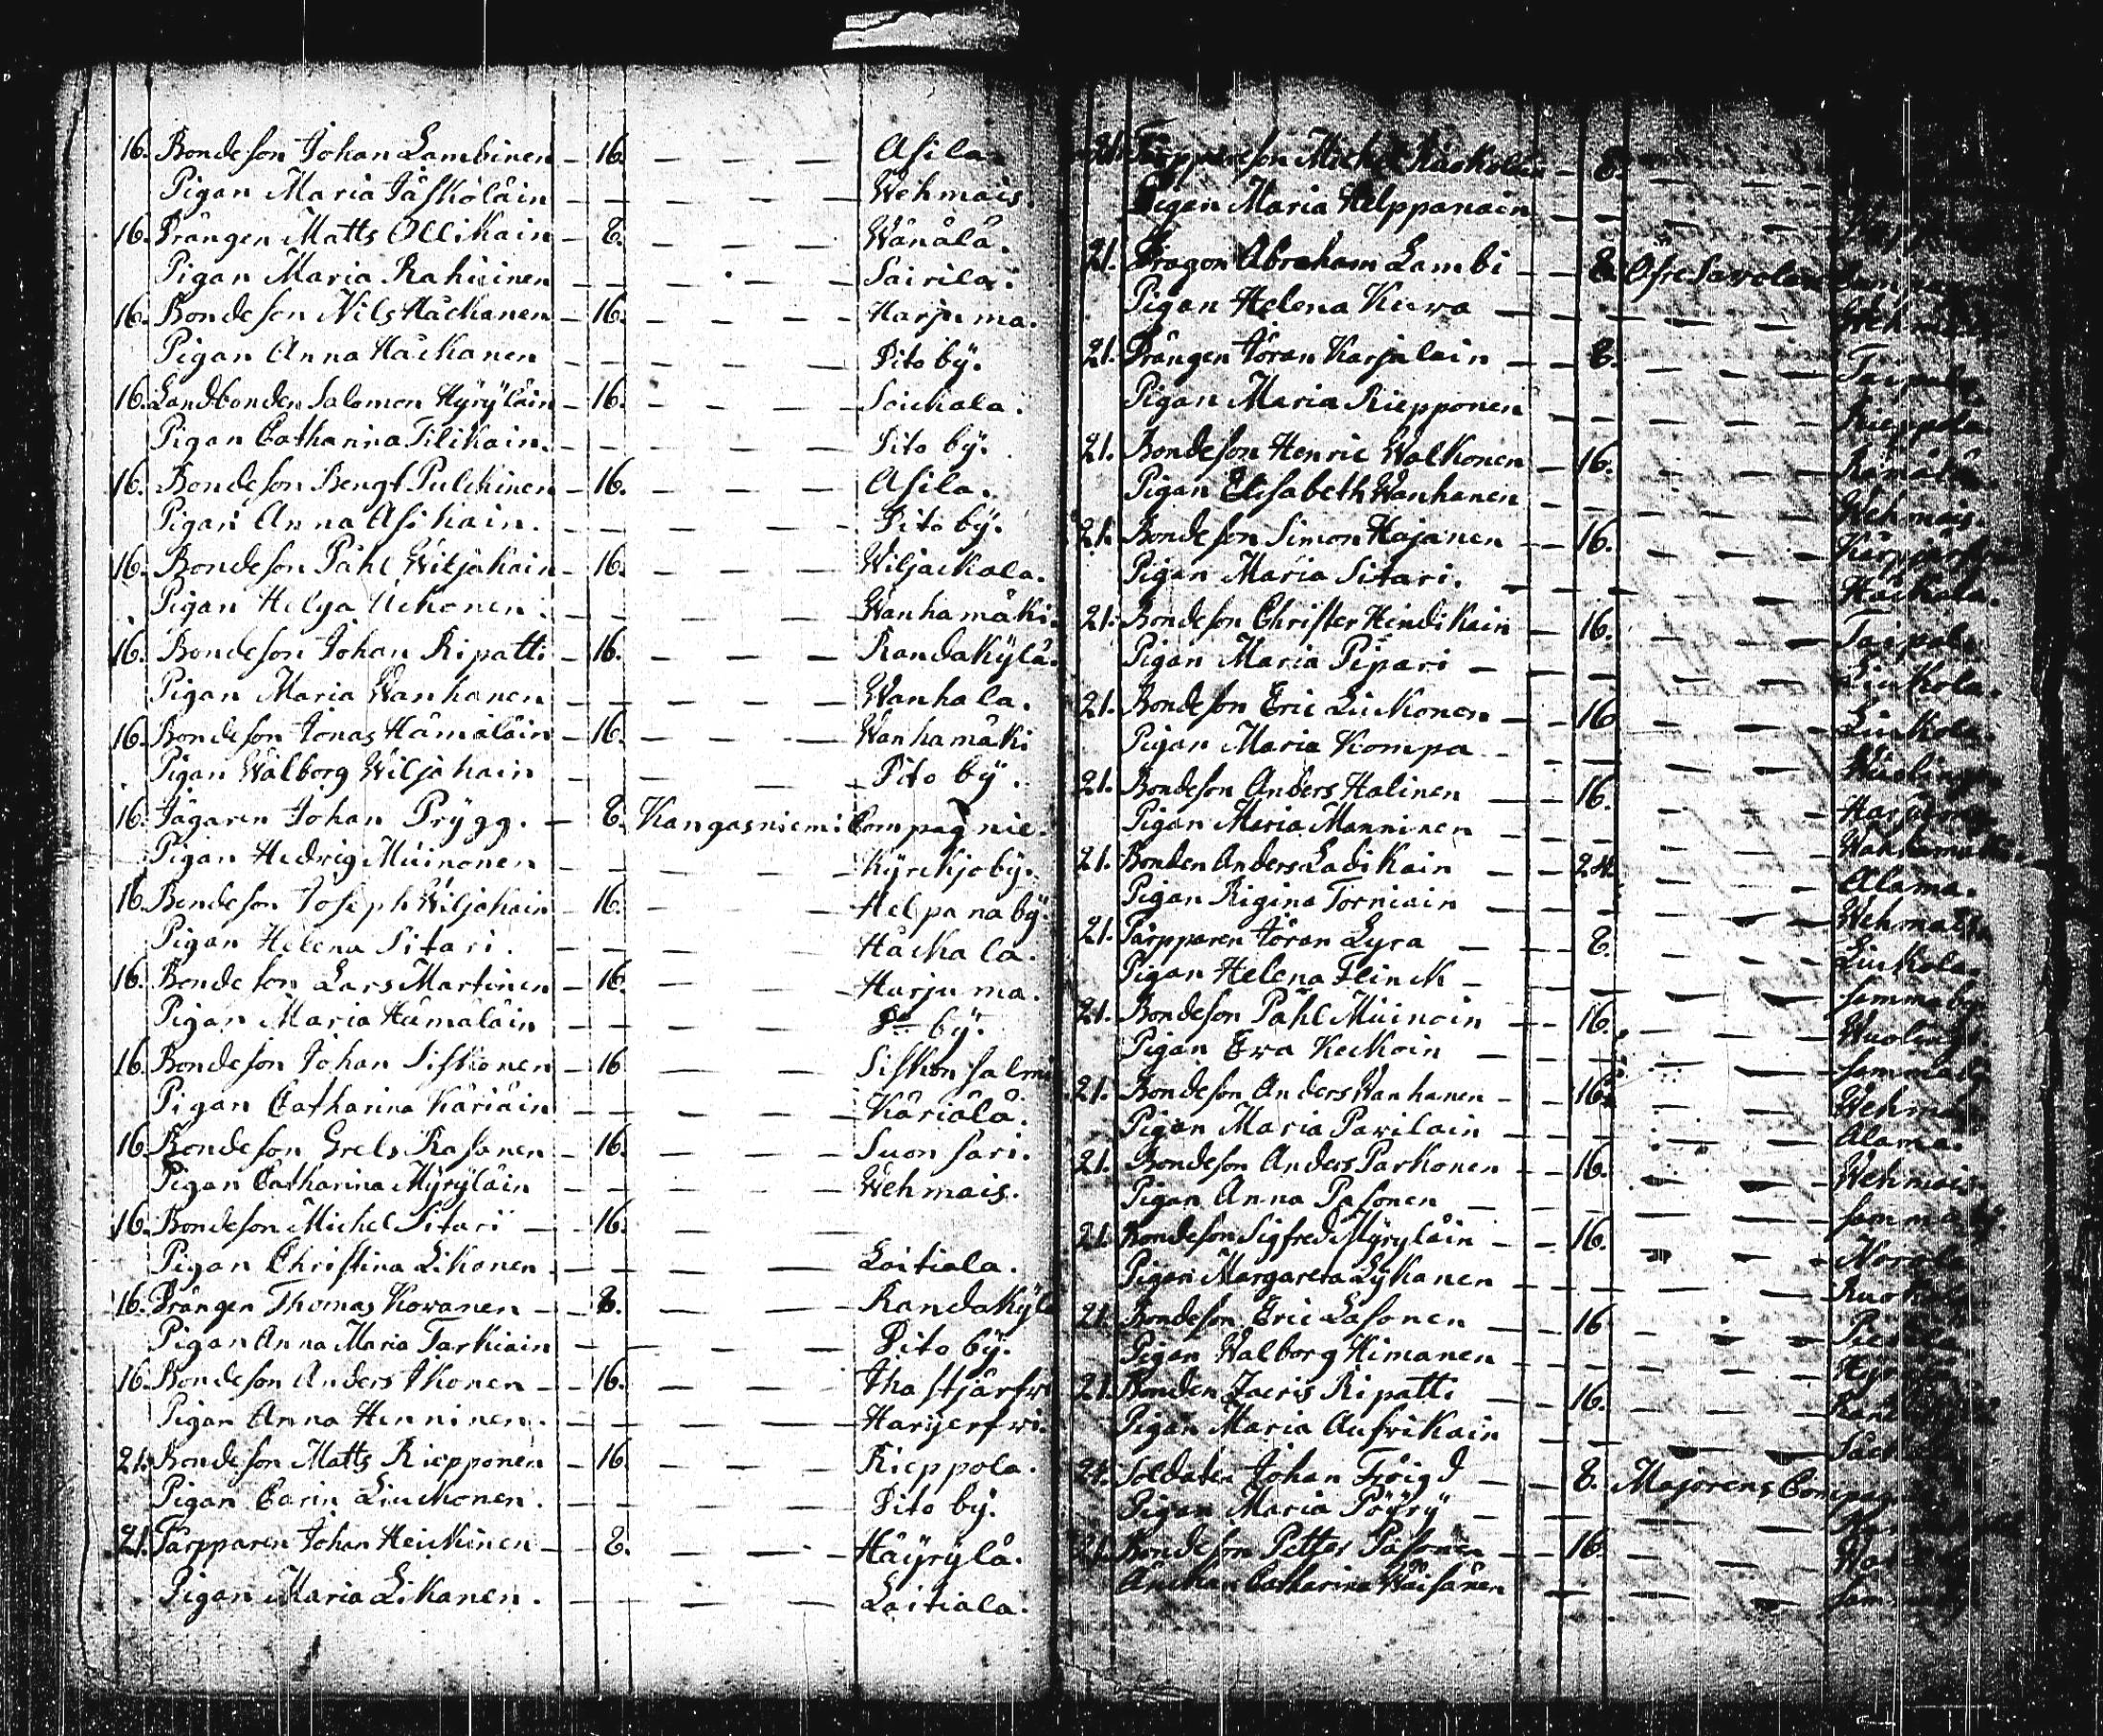 16. Bondeson Johan Lambinen - 16. - - - Asila.
Pigan Maria Jäskoläin - - - - - Wehmais.
16. Drängen Matts Ollikain - 8. - - - Wänälä.
Pigan Maria Rahiuinen - - - - - Sairila.
16. Bondeson Nils Häckanen - 16. - - - Harjuma.
Pigan Anna Häckanen - - - - - Dito bÿ.
16. Landbonden Salomon Hÿrÿläin - 16. - - - Soickala.
Pigan Catharina Tilikain. - - - - - Dito bÿ.
16. Bondeson Bengt Pulckinen - 16. - - - Asila.
Pigan Anna Asikain. - - - - - Dito bÿ.
16. Bondeson Påhl Wiljakain - 16. - - - Wiljackala.
Pigan Helga Uckonen. - - - - - Wanhamäki.
16. Bondeson Johan Ripatti - 16. - - - Randakÿlä.
Pigan Maria Wanhanen - - - - - Wanhala.
16. Bondeson Jonas Hämäläin - 16. - - - Wanhamäki
Pigan Walborg Wiljakain - - - - Dito bÿ.
16. Jägaren Johan Prÿgg. - 8. Kangasniemi Compagnie.
Pigan Hedvig Muinonen - - - - - Kÿrckjobÿ.
16. Bondeson Joseph Wiljakain - 16. - - - Helpanabÿ.
Pigan Helena Sitari. - - - - - Häckala.
16. Bondeson Lars Martinen - 16. - - - Harjuma.
Pigan Maria Hämäläin - - - - - Do bÿ.
16. Bondeson Johan Siskonen - 16 - - - Siskonsalmi
Pigan Catharina Käriäin - - - - - Käriälä.
16. Bondeson Grels Rasanen - 16. - - - Suonsari.
Pigan Catharina Mÿrÿläin - - - - - Wehmais.
16. Bondeson Michel Sitari - 16. - -
Pigan Christina Likonen - - - - - Loitiala.
16. Drängen Thomas Kovanen - 8. - - - Randakÿlä
Pigan Anna Maria Tarkiain - - - - Dito bÿ.
16. Bondeson Anders Ikonen - 16. - - - Ihastjärfwi
Pigan Anna Hinninen. - - - - - Harjerfwi.
21. Bondeson Matts Riepponen - 16. - - - Rieppola.
Pigan Carin Liuckonen. - - - - - Dito bÿ.
21. Parpparen Johan Heickinen - 8. - - - Häÿrÿlä.
Pigan Maria Likanen. - - - - - Loitiala.
21. Michel - 8. - - -
Pigan Maria Helppanain - - - - -
21. Dragon Abraham Lambi - - 8. Öfre Savolax
Pigan Helena Kurva - - - - -
21. Drängen Jöran Karjalain - - 8. - - - Taipale
Pigan Maria Riepponen - - - - - Rieppola
21. Bondeson Henric Walkonen - 16. - - -
Pigan Elisabeth Wanhanen - - - - - Wehmais.
21. Bondeson Simon Hajanen - - 16. - - -
Pigan Maria Sitari. - - - - - Häckala.
21. Bondeson Christer Hindikain - 16. - - - Taipale
Pigan Maria Pipari - - - - - Liukola.
21. Bondeson Eric Liuckonen - - 16 - - - Liukola.
Pigan Maria Kompa - - - - -
21. Bondeson Anders Halinen - - 16. - - -
Pigan Maria Manninen - - - - -
21. Bonden Anders Ladikain - - 24. - - - Alama.
Pigan Rigina Torniain - - - - -
21. Parpparen Jöran Lyra - - 8. - - - Liukola.
Pigan Helena Flinck - - - - - samma by
21. Bondeson Påhl Muinoin - - 16. - - -
Pigan Ewa Keckoin - - - - - samma by
21. Bondeson Anders Wanhanen - - 16. - - -
Pigan Maria Pavilain - - - - - Alama.
21. Bondeson Anders Parkonen - - 16. - - - Wehmais
Pigan Anna Pasonen - - - - - samma bÿ.
21. Bondeson Sigfred Mÿrÿläin - - 16. - - -
Pigan Margareta Lÿkanen - - - - -
21. Bondeson Eric Lasonen - - 16 - - -
Pigan Walborg Himanen - - - - -
21. Bonden Zacris Ripatti - - 16. - - -
Pigan Maria Aufrikain - - - - -
21. Soldaten Johan Fröigd - - 8. Majorens Compagnie
Pigan Maria Pöÿrÿ - - - - -
21. Bondeson Petter Pasonen - - 16. - - -
Änckan Catharina Wäisänen - - -